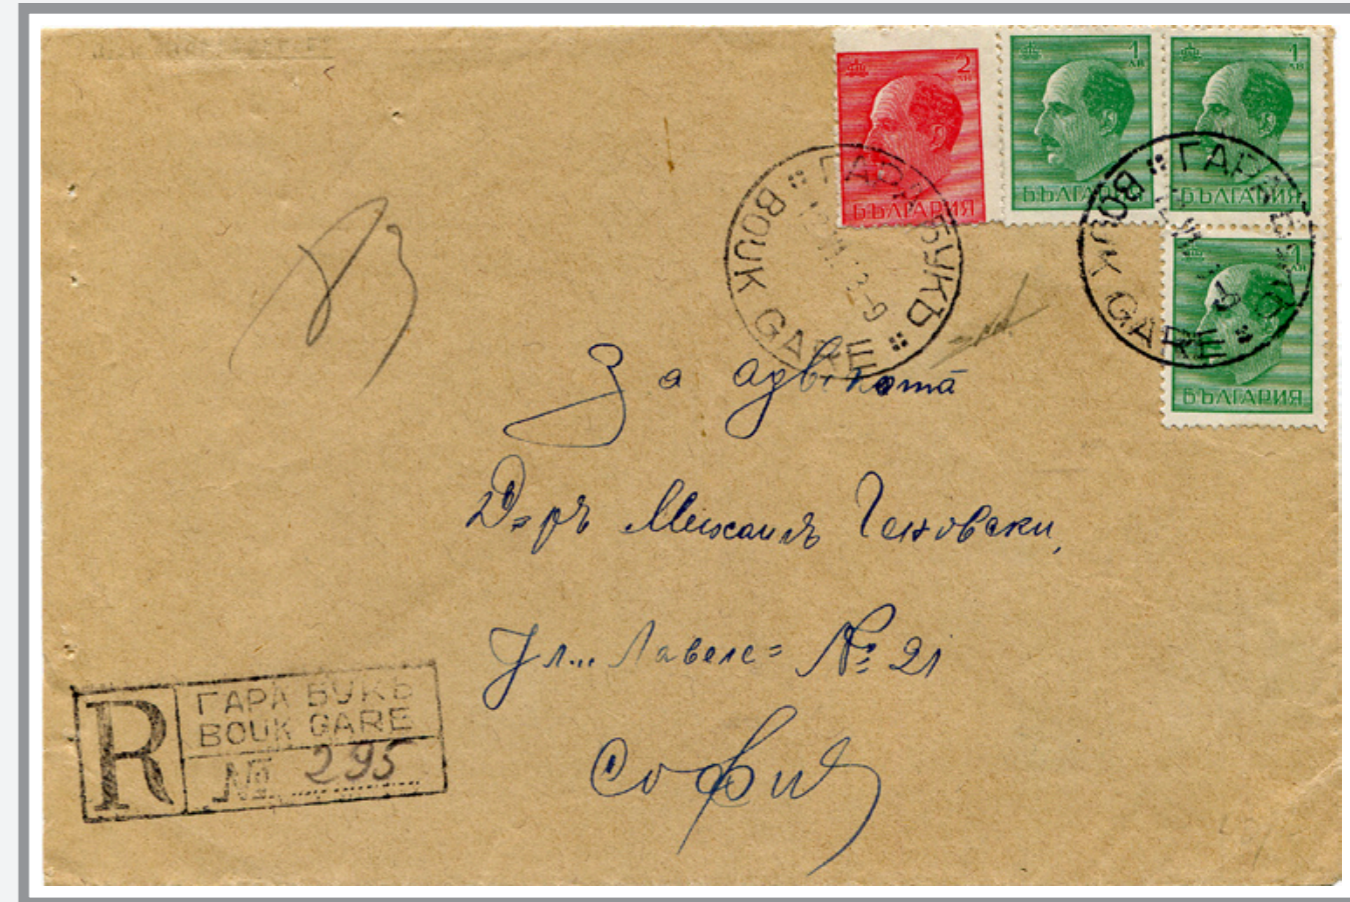 2 ЛВ
БЪЛГАРИЯ
1 ЛВ
БЪЛГАРИЯ
1 ЛВ
БЪЛГАРИЯ
1 ЛВ
БЪЛГАРИЯ
ГАРА БУКЪ
BOUK GARE
ГАРА БУКЪ
BOUK GARE
За адвоката
Д-ръ Михаилъ Геновски,
Ул. Лавеле № 21
София
R
ГАРА БУКЪ
BOUK GARE
№ 295